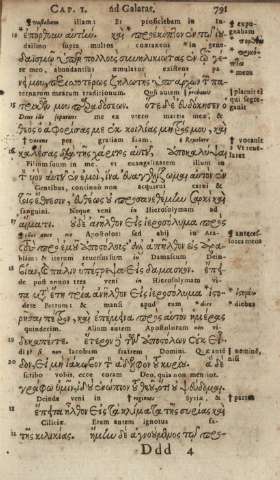 CAP. I. ad Galatas. 791
illam: Et proficiebam in Iu-
supra multos coætaneos in gene-
δαϊσμῷ ὑπὲρ πολλοὺς συνηλικιώτας ἐν τῷ γέ-
re meo, abundantius æmulator existens pa-
νει μου, περισσοτέρως ζηλωτὴς ὑπάρχων τῶν πα-
ternarum mearum traditionum. Quũ autem
τρικῶν μου παραδόσεων. ὅτε δὲ εὐδόκησεν ὁ
me ex vtero matris meæ, &
θεὸς ὁ ἀφορίσας με ἐκ κοιλίας μητρός μου, καὶ
per gratiam suam,
καλέσας διὰ τῆς χάριτος αὐτοῦ, ἀποκαλύψαι
Filium in me, vt euangelizarem illum in
τὸν υἱὸν αὐτοῦ ἐν ἐμοί, ἵνα εὐαγγελίζωμαι αὐτὸν ἐν
Gentibus, continuò non acquieui carni &
τοῖς ἔθνεσιν, εὐθέως οὐ προσανεθέμην σαρκὶ καὶ
sanguini. Neque veni in Hierosolymam ad
αἵματι. οὐδὲ ἀνῆλθον εἰς ἱεροσόλυμα πρὸς
me Apostolos: sed abii in Ara-
τοὺς πρὸ ἐμοῦ ἀποστόλους ἀλλ' ἀπῆλθον εἰς ἀρα-
biam: & iterum reuersus sum in Damascum Dein-
βίαν, καὶ πάλιν ὑπέστρεψα εἰς δαμασκόν. ἔπει-
de post annos tres veni in Hierosolymam
τα μετὰ ἔτη τρία ἀνῆλθον εἰς ἱεροσόλυμα ἱστο-
dere Petrum: & mansi apud eum
ρῆσαι πέτρον, καὶ ἐπέμεινα πρὸς αὐτὸν ἡμέρας
quindecim. Alium autem Apostolorum non vi-
δεκαπέντε. ἕτερον δὲ τῶν ἀποστόλων οὐκ εἶ-
di Iacobum fratrem Domini. Quæ
δον, εἰ μὴ ἰάκωβον τὸν ἀδελφὸν τοῦ κυρίου. ἃ δὲ
scribo vobis, ecce coram Deo, quia non mentior.
γράφω ὑμῖν, ἰδοὺ ἐνώπιον τοῦ θεοῦ, ὅτι οὐ ψεύδομαι.
Deinde veni in Syriæ, &
ἔπειτα ἦλθον εἰς τὰ κλίματα τῆς συρίας καὶ
Ciliciæ. Eram autem ignotus
τῆς κιλικίας. ἤμην δὲ ἀγνοούμενος τῷ προσ-
Ddd 4